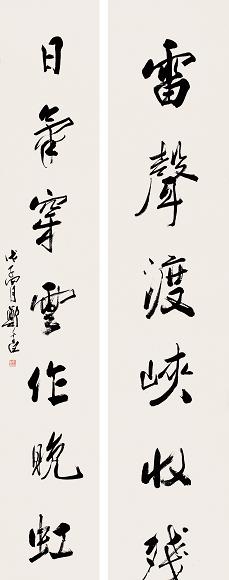 雷聲渡峽收殘
日氣穿雲作晚虹